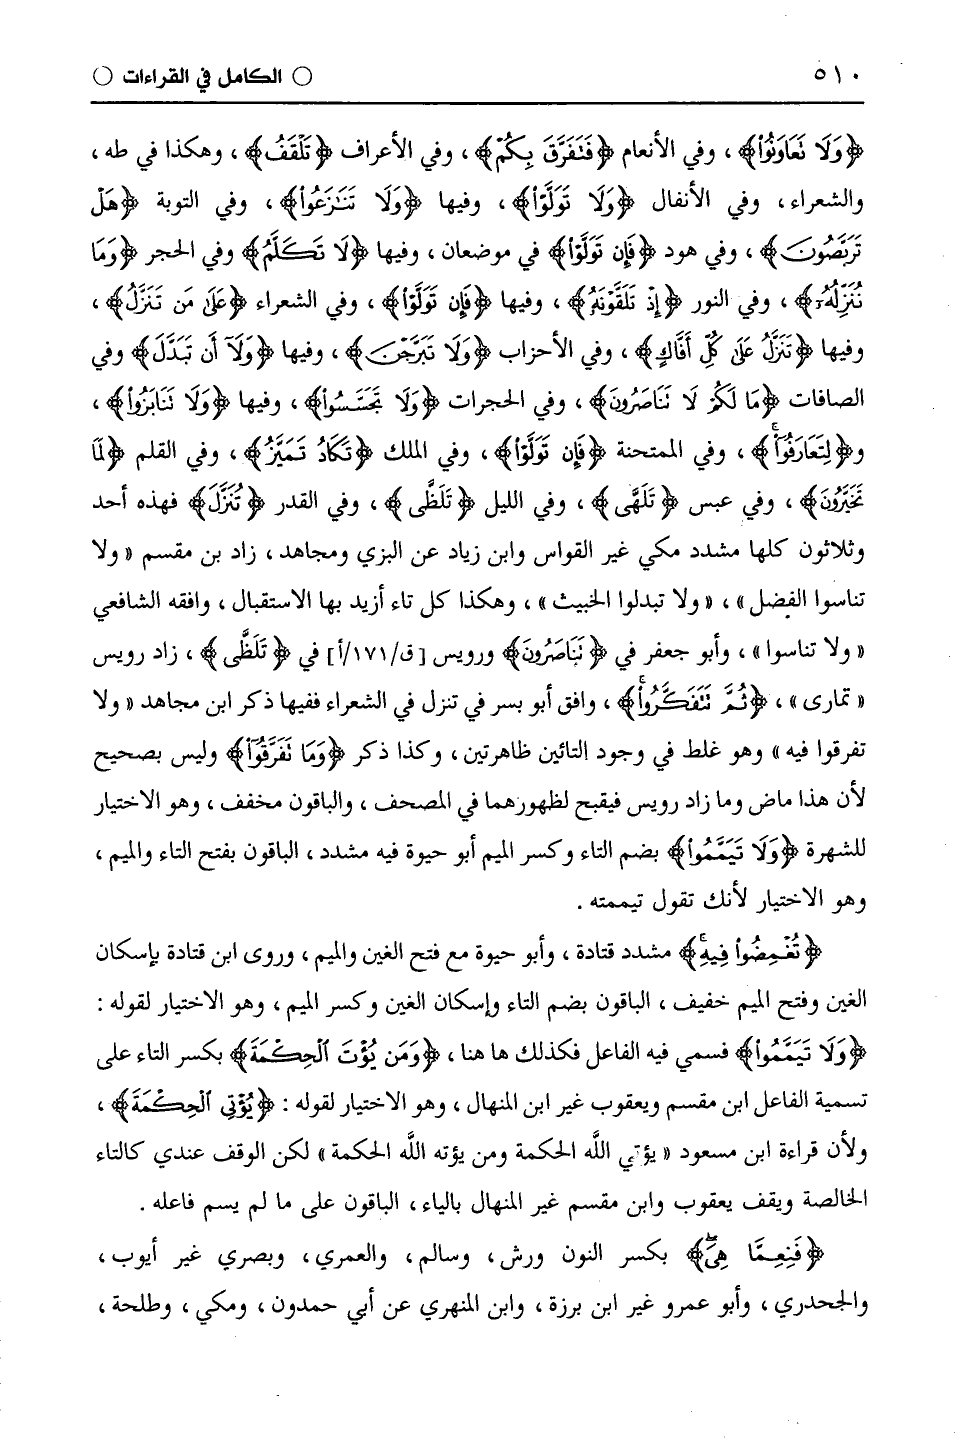 ٥١٠ ○ الكامل في القراءات ○
﴿وَلَا تَعَاوَنُوا۟﴾ ، وفي الأنعام ﴿فَتَفَرَّقَ بِكُمْ﴾ ، وفي الأعراف ﴿تَلْقَفُ﴾ ، وهكذا في طه ،
والشعراء ، وفي الأنفال ﴿وَلَا تَوَلَّوْا۟﴾ ، وفيها ﴿وَلَا تَنَـٰزَعُوا۟﴾ ، وفي التوبة ﴿هَلْ
تَرَبَّصُونَ﴾ ، وفي هود ﴿فَإِن تَوَلَّوْا۟﴾ في موضعان ، وفيها ﴿لَا تَكَلَّمُ﴾ وفي الحجر ﴿وَمَا
نُنَزِّلُهُۥٓ﴾ ، وفي النور ﴿إِذْ تَلَقَّوْنَهُۥ﴾ ، وفيها ﴿فَإِن تَوَلَّوْا۟﴾ ، وفي الشعراء ﴿عَلَىٰ مَن تَنَزَّلُ﴾ ،
وفيها ﴿تَنَزَّلُ عَلَىٰ كُلِّ أَفَّاكٍ﴾ ، وفي الأحزاب ﴿وَلَا تَبَرَّجْنَ﴾ ، وفيها ﴿وَلَآ أَن تَبَدَّلَ﴾ وفي
الصافات ﴿مَا لَكُمْ لَا تَنَاصَرُونَ﴾ ، وفي الحجرات ﴿وَلَا تَجَسَّسُوا۟﴾ ، وفيها ﴿وَلَا تَنَابَزُوا۟﴾ ،
و﴿لِتَعَارَفُوٓا۟ۚ﴾ ، وفي الممتحنة ﴿فَإِن تَوَلَّوْا۟﴾ ، وفي الملك ﴿تَكَادُ تَمَيَّزُ﴾ ، وفي القلم ﴿لَمَا
تَخَيَّرُونَ﴾ ، وفي عبس ﴿تَلَهَّى﴾ ، وفي الليل ﴿تَلَظَّى﴾ ، وفي القدر ﴿تُنَزَّلَ﴾ فهذه أحد
وثلاثون كلها مشدد مكي غير القواس وابن زياد عن البزي ومجاهد ، زاد بن مقسم « ولا
تناسوا الفضل » ، « ولا تبدلوا الخبيث » ، وهكذا كل تاء أزيد بها الاستقبال ، وافقه الشافعي
« ولا تناسوا » ، وأبو جعفر في ﴿تَنَاصَرُونَ﴾ ورويس [ق/١٧١/أ] في ﴿تَلَظَّى﴾ ، زاد رويس
« تمارى » ، ﴿ثُمَّ تَتَفَكَّرُوا۟ۚ﴾ ، وافق أبو بسر في تنزل في الشعراء ففيها ذكر ابن مجاهد « ولا
تفرقوا فيه » وهو غلط في وجود التائين ظاهرتين ، وكذا ذكر ﴿وَمَا تَفَرَّقُوٓا۟﴾ وليس بصحيح
لأن هذا ماض وما زاد رويس فيقبح لظهورهما في المصحف ، والباقون مخفف ، وهو الاختيار
للشهرة ﴿وَلَا تَيَمَّمُوا۟﴾ بضم التاء وكسر الميم أبو حيوة فيه مشدد ، الباقون بفتح التاء والميم ،
وهو الاختيار لأنك تقول تيممته .
﴿تُغْمِضُوا۟ فِيهِۚ﴾ مشدد قتادة ، وأبو حيوة مع فتح الغين والميم ، وروى ابن قتادة بإسكان
الغين وفتح الميم خفيف ، الباقون بضم التاء وإسكان الغين وكسر الميم ، وهو الاختيار لقوله :
﴿وَلَا تَيَمَّمُوا۟﴾ فسمي فيه الفاعل فكذلك ها هنا ، ﴿وَمَن يُؤْتَ ٱلْحِكْمَةَ﴾ بكسر التاء على
تسمية الفاعل ابن مقسم ويعقوب غير ابن المنهال ، وهو الاختيار لقوله : ﴿يُؤْتِى ٱلْحِكْمَةَ﴾ ،
ولأن قراءة ابن مسعود « يؤتي اللَّه الحكمة ومن يؤته اللَّه الحكمة » لكن الوقف عندي كالتاء
الخالصة ويقف يعقوب وابن مقسم غير المنهال بالياء ، الباقون على ما لم يسم فاعله .
﴿فَنِعِمَّا هِىَۖ﴾ بكسر النون ورش ، وسالم ، والعمري ، وبصري غير أيوب ،
والجحدري ، وأبو عمرو غير ابن برزة ، وابن المنهري عن أبي حمدون ، ومكي ، وطلحة ،